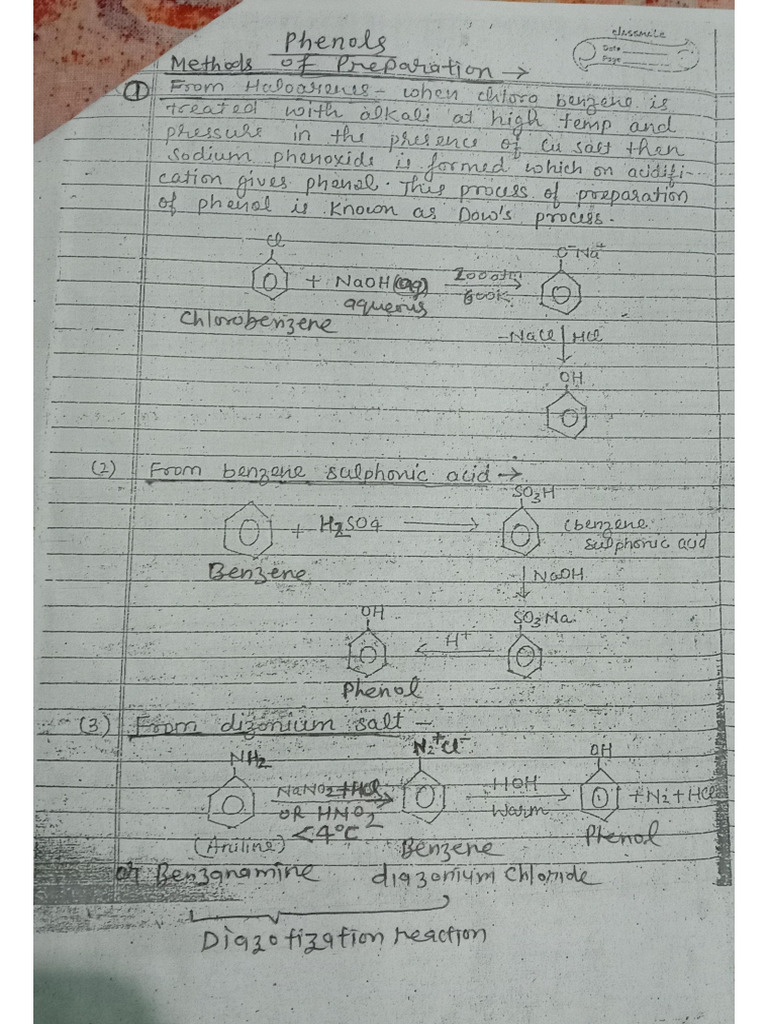 Phenols
classmate
Date
Page
Methods of Preparation →
① From Haloarenes - when chloro benzene is
treated with alkali at high temp and
pressure in the presence of Cu salt then
sodium phenoxide is formed which on acidifi-
cation gives phenol. This process of preparation
of phenol is known as Dow's process.
Cl
O⁻Na⁺
+ NaOH(aq) 200atm
aqueous 600K
Chlorobenzene
-NaCl HCl
OH
(2) From benzene sulphonic acid →
SO3H
+ H2SO4 → (benzene
sulphonic acid
Benzene
↓ NaOH
OH
SO3Na
← H⁺
Phenol
(3) From dizonium salt -
NH2 N2⁺Cl⁻ OH
NaNO2+HCl → HOH → + N2 + HCl
OR HNO2 Warm
<4°C
Phenol
(Aniline) Benzene
or Benzanamine diazonium Chloride
Diazotization reaction